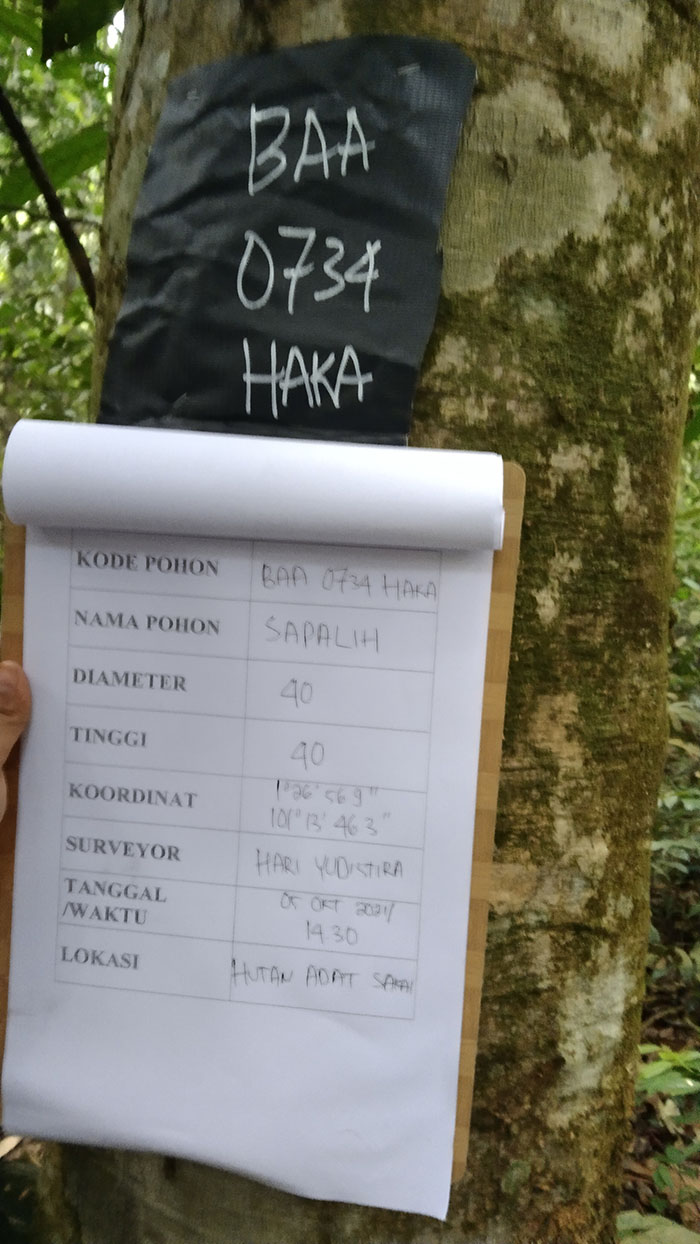 BAA
0734
HAKA
KODE POHON BAA 0734 HAKA
NAMA POHON SAPALIH
DIAMETER 40
TINGGI 40
KOORDINAT 1°26'56 9"
101°13'46 3"
SURVEYOR HARI YUDISTIRA
TANGGAL
/WAKTU 05 OKT 2021/
14.30
LOKASI HUTAN ADAT SAKAI